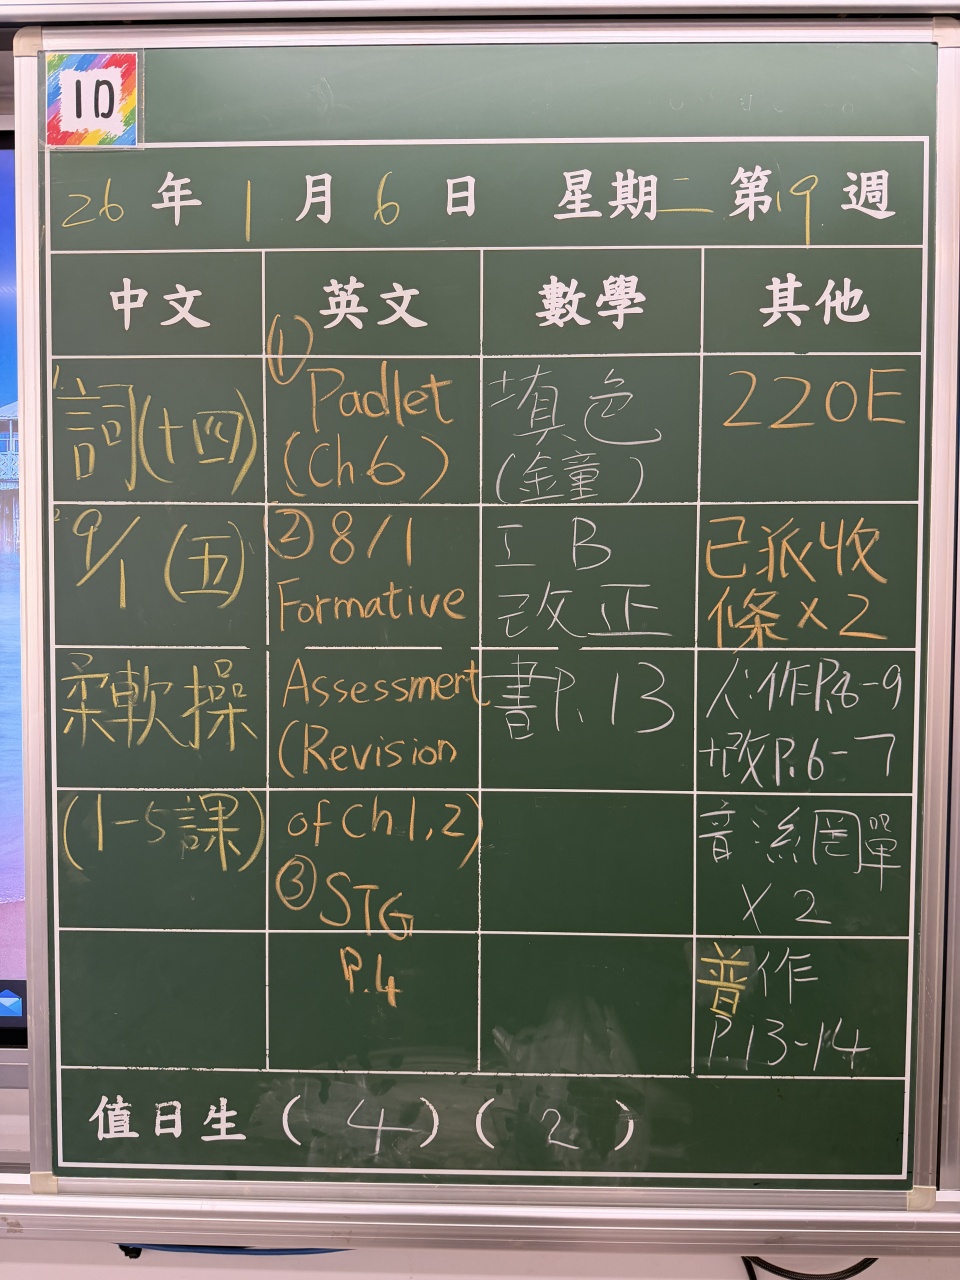 1D
26年1月6日 星期二 第19週
中文
英文
數學
其他
1.
詞(十四)
2.
9/1 (五)
柔軟操
(1-5課)
①
Padlet
(Ch.6)
② 8/1
Formative
Assessment
(Revision
of Ch.1,2)
③ STG
P.4
填色
(鐘)
工B
改正
書P.13
220E
已派收
條×2
人作P.8-9
+改P.6-7
音
×2
普作
P.13-14
值日生 ( 4 ) ( 2 )